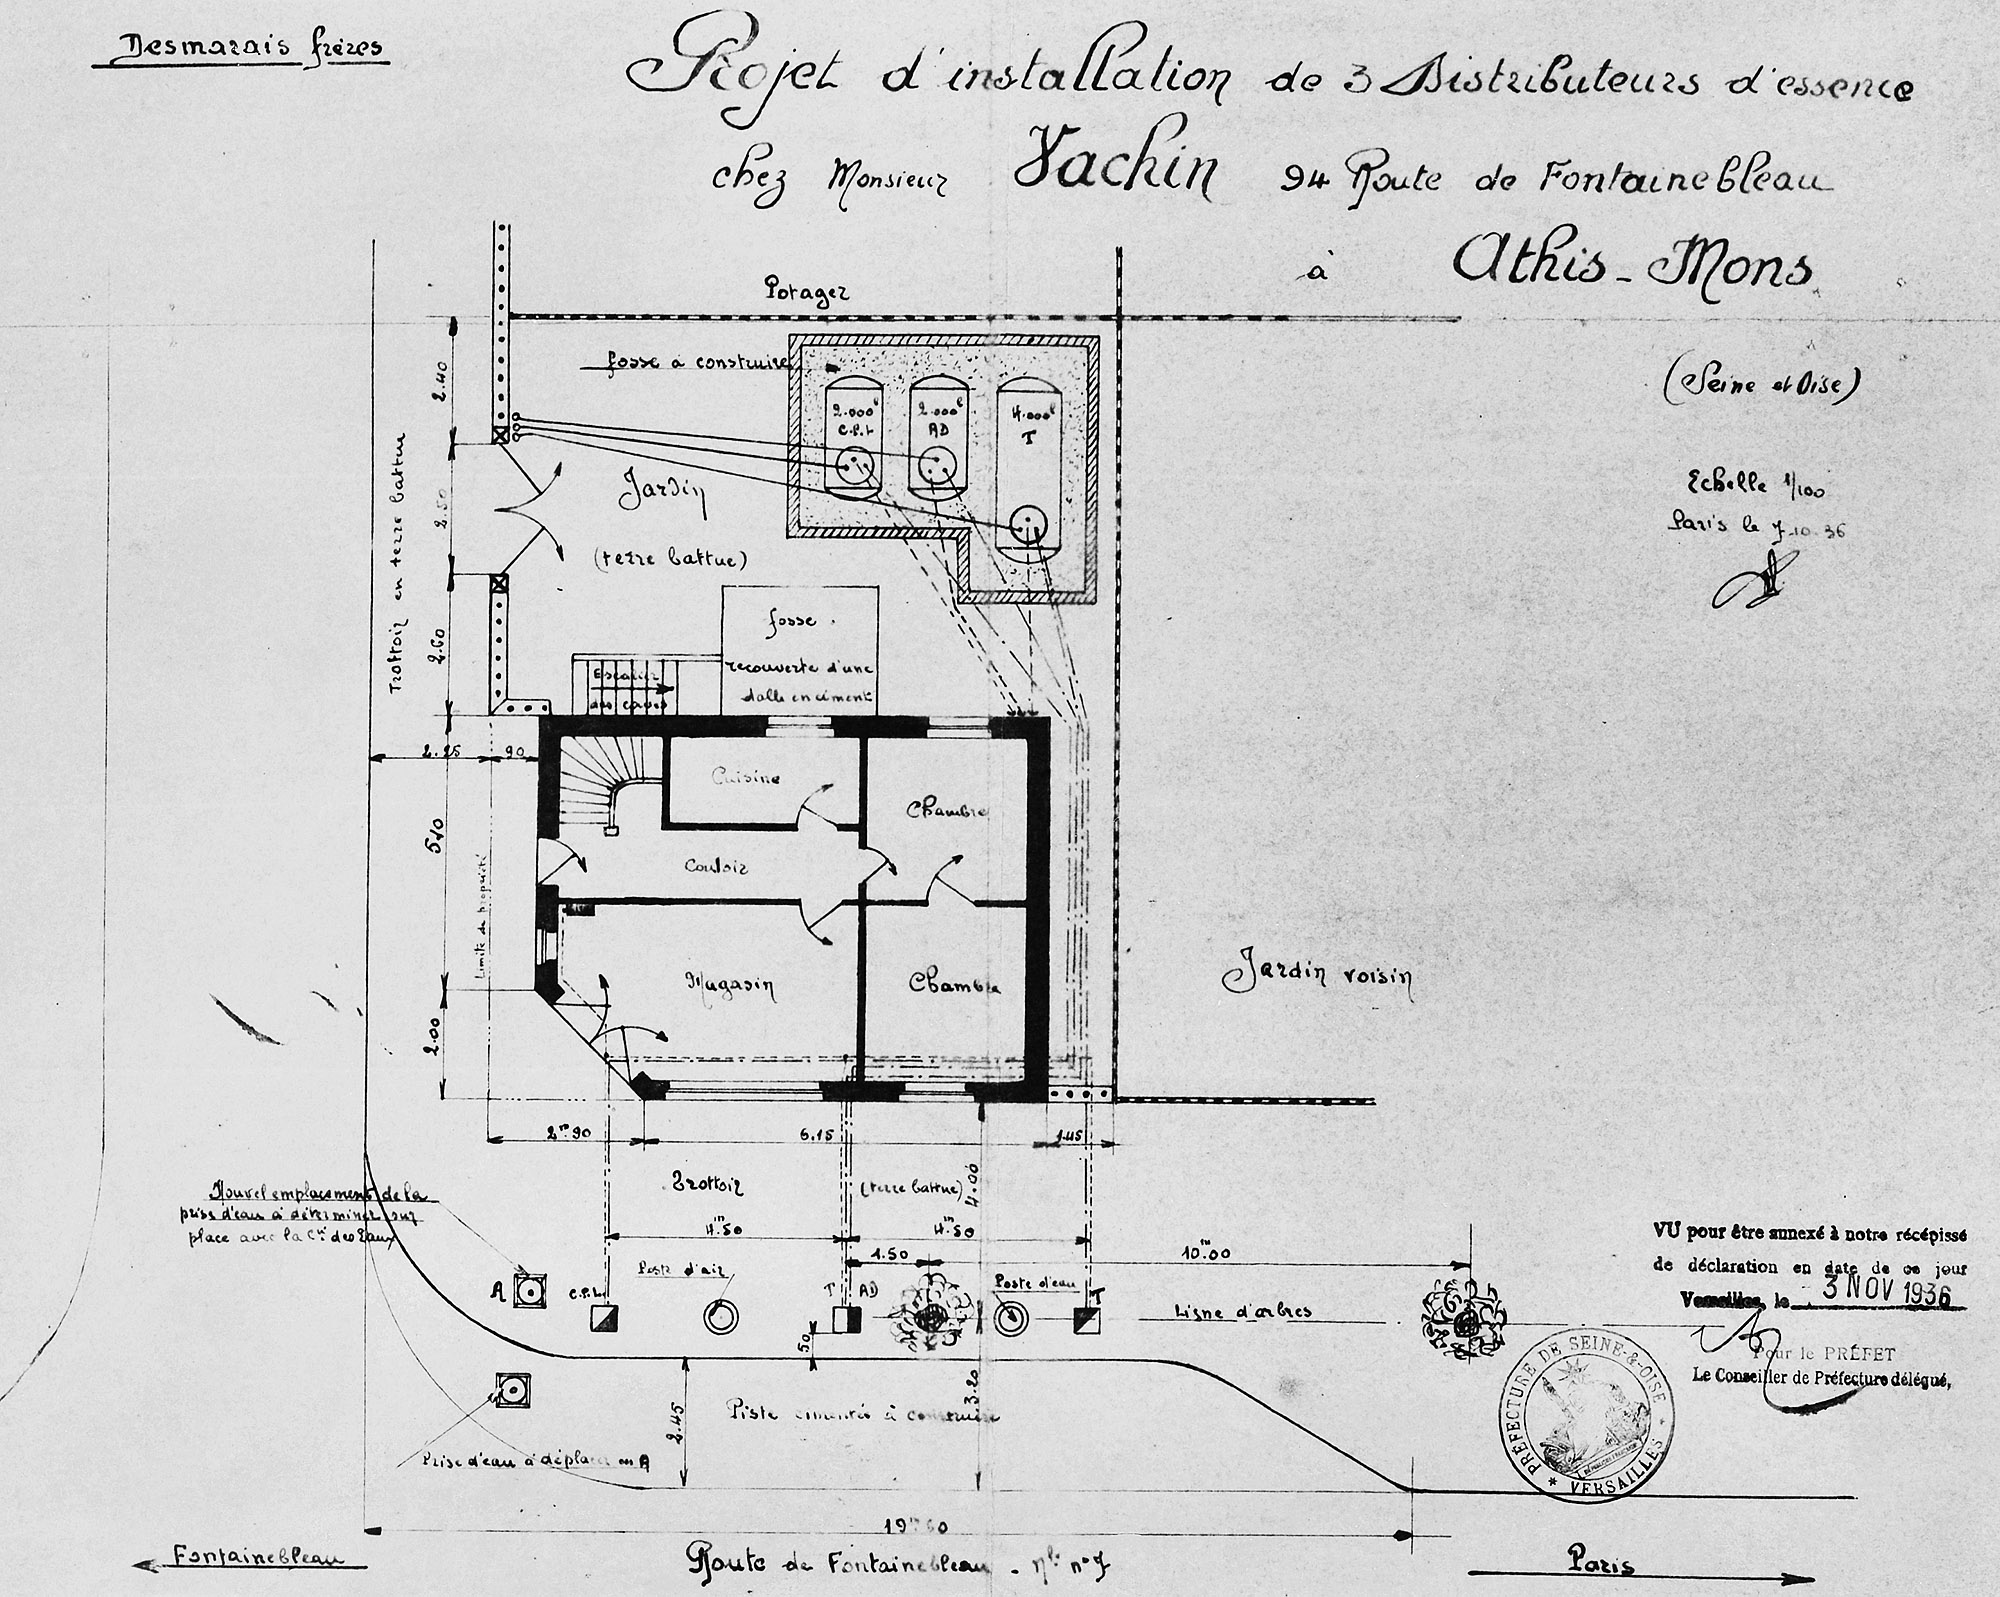 Desmarais frères
Projet d'installation de 3 Distributeurs d'essence
chez Monsieur Vachin 94 Route de Fontainebleau
à Athis-Mons
(Seine et Oise)
Echelle 1/100
Paris le 7.10.36
Potager
fosse à construire
2.000l
C.P.L
2.000l
AD
4.000l
T
2.40
2.50
2.60
Trottoir en terre battue
Jardin
(terre battue)
fosse
recouverte d'une
dalle en ciment
Escalier
des caves
2.25
90
5.10
2.00
Limite de propriété
Cuisine
Chambre
Couloir
Magasin
Chambre
Jardin voisin
2m90
6.15
1.45
Trottoir
(terre battue)
4.00
4m.50
4m.50
1.50
10m.00
Nouvel emplacement de la
prise d'eau à déterminer sur
place avec la Cie des Eaux
A
C.P.L.
Poste d'air
T
AD
Poste d'eau
T
Ligne d'arbres
50
3.20
2.45
Piste cimentée à construire
Prise d'eau à déplacer en A
Fontainebleau
Route de Fontainebleau - Nle n°7
Paris
VU pour être annexé à notre récépissé
de déclaration en date de ce jour
Versailles, le 3 NOV 1936
Pour le PRÉFET
Le Conseiller de Préfecture délégué,
PRÉFECTURE DE SEINE-&-OISE
* VERSAILLES *